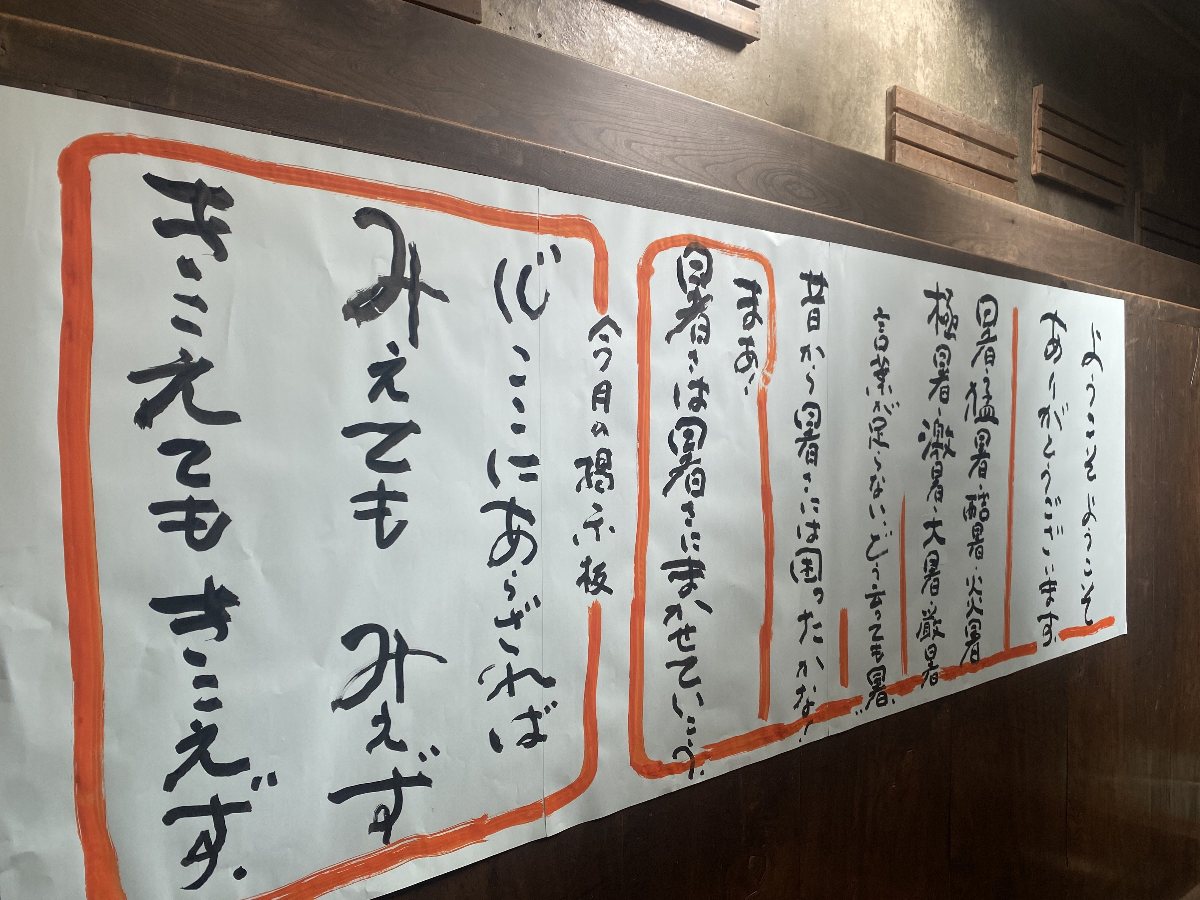 ようこそ ようこそ
ありがとうございます。
暑・猛暑・酷暑・炎暑
極暑・激暑・大暑・厳暑
言葉が足らないどう言っても暑。
昔から暑さには困ったかな!
まあ!
暑さは暑さにまかせていこう。
今月の掲示板
心ここにあらざれば
みえても みえず
きこえても きこえず。